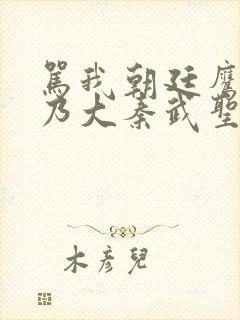 罵我朝廷鷹
乃大秦武聖
木彥兒